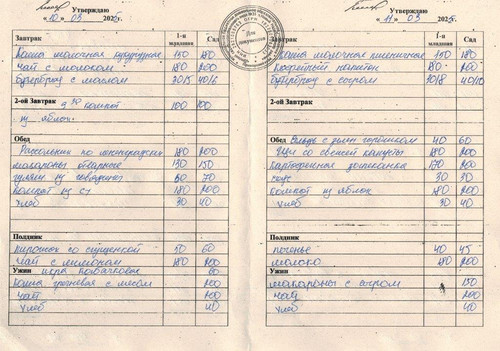 Утверждаю
« 10 » 03 2025г.
Завтрак 1-я младшая Сад
Каша молочная кукурузная 150 180
Чай с молоком 180 200
Бутерброд с маслом 30/5 40/6
2-ой Завтрак
9 30 компот 100 100
из яблок
Обед
Рассольник по ленинградски 180 200
Макароны отварные 130 150
гуляш из говядины 60 70
Компот из с/ф 180 200
Хлеб 30 40
Полдник
Пирожок со сгущенкой 50 60
Чай с лимоном 180 200
Ужин икра кабачковая 60
Каша гречневая с мясом 200
Чай 200
Хлеб 40
Утверждаю
« 11 » 03 2025г.
Завтрак 1-я младшая Сад
Каша молочная пшеничная 150 180
Кофейный напиток 180 200
Бутерброд с сыром 30/8 40/10
Для документов
2-ой Завтрак
Обед Сельдь с горошком 40 60
Щи со свежей капусты 180 200
Картофельная запеканка 170 200
соус 30 30
Компот из яблок 180 200
Хлеб 30 40
Полдник
Печенье 40 45
Молоко 180 200
Ужин
Макароны с сыром 150
Чай 200
Хлеб 40